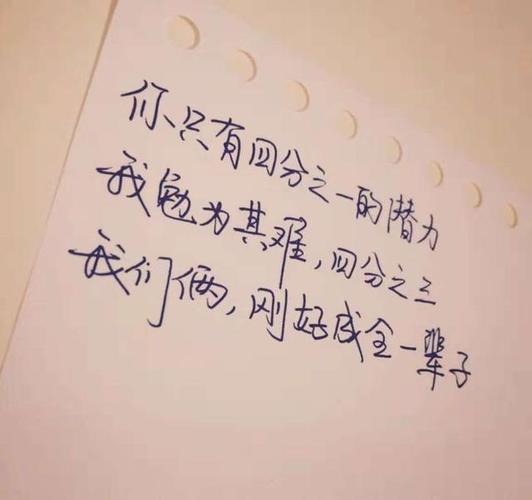 你只有四分之一的潜力
我勉为其难,四分之三
我们俩,刚好成全一辈子